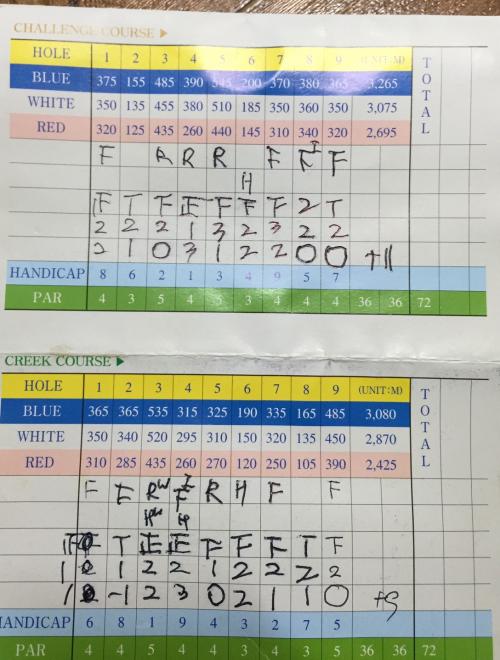 CHALLENGE COURSE ▶
HOLE 1 2 3 4 5 6 7 8 9 (UNIT:M) TOTAL
BLUE 375 155 485 390 545 200 370 380 365 3,265
WHITE 350 135 455 380 510 185 350 360 350 3,075
RED 320 125 435 260 440 145 310 340 320 2,695
F R R R F F I F
H
F T F F F F F 2 T
2 2 2 1 3 2 3 2 2
2 1 0 3 1 2 2 0 0 +11
HANDICAP 8 6 2 1 3 4 9 5 7
PAR 4 3 5 4 5 3 4 4 4 36 36 72
CREEK COURSE ▶
HOLE 1 2 3 4 5 6 7 8 9 (UNIT:M) TOTAL
BLUE 365 365 535 315 325 190 335 165 485 3,080
WHITE 350 340 520 295 310 150 320 135 450 2,870
RED 310 285 435 260 270 120 250 105 390 2,425
F F RW I F R H F F
F T F F F F F T F
1 1 2 2 1 2 2 2 2
1 -1 2 3 0 2 1 1 0 +9
HANDICAP 6 8 1 9 4 3 2 7 5
PAR 4 4 5 4 4 3 4 3 5 36 36 72